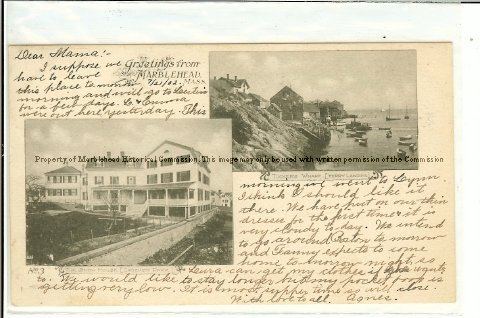 Dear Mama:-
Greetings from
MARBLEHEAD,
MASS.
I suppose we
have to leave
this place to morrow
morning and will go to
for a few days. G. & Emma
were out here yesterday. This
Property of Marblehead Historical Commission. This image may only be used with written permission of the Commission
TUCKERS WHARF (FERRY LANDING)
morning we went to Lynn.
I think I should like it
there. We have put on our thin
dresses for the first time & it is
very cloudy to day. We intend
to go around Salem to morrow
and Fanny expects to some
time to-morrow night, so
Laura can get my clothes if she wants
to. We would like to stay longer but my pocket book is
getting very low. It is most supper time so will close.
With love to all. Agnes.